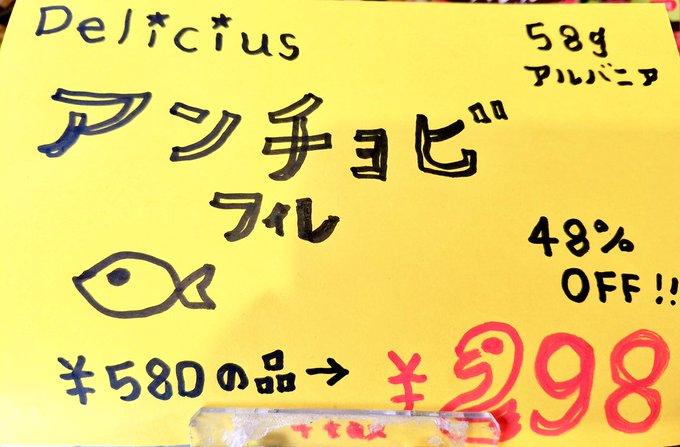 Delicius
58g
アルバニア
アンチョビ
フィレ
48%
OFF!!
¥580の品→ ¥298